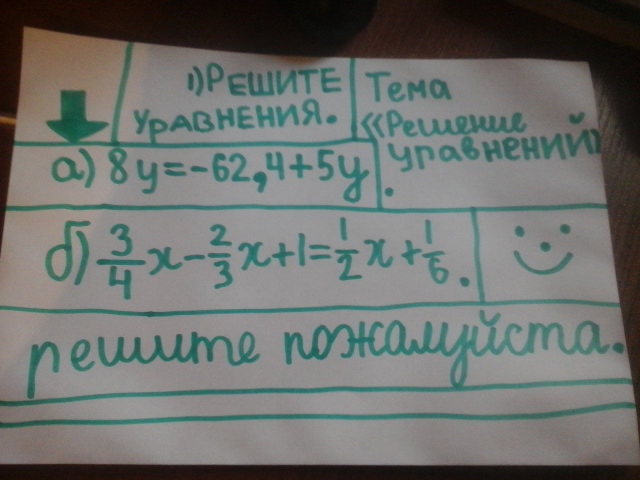 1) РЕШИТЕ
УРАВНЕНИЯ.
Тема
«Решение
уравнений»
.
а) 8y=-62,4+5y
б) 3/4 x - 2/3 x + 1 = 1/2 x + 1/6 .
решите пожалуйста.